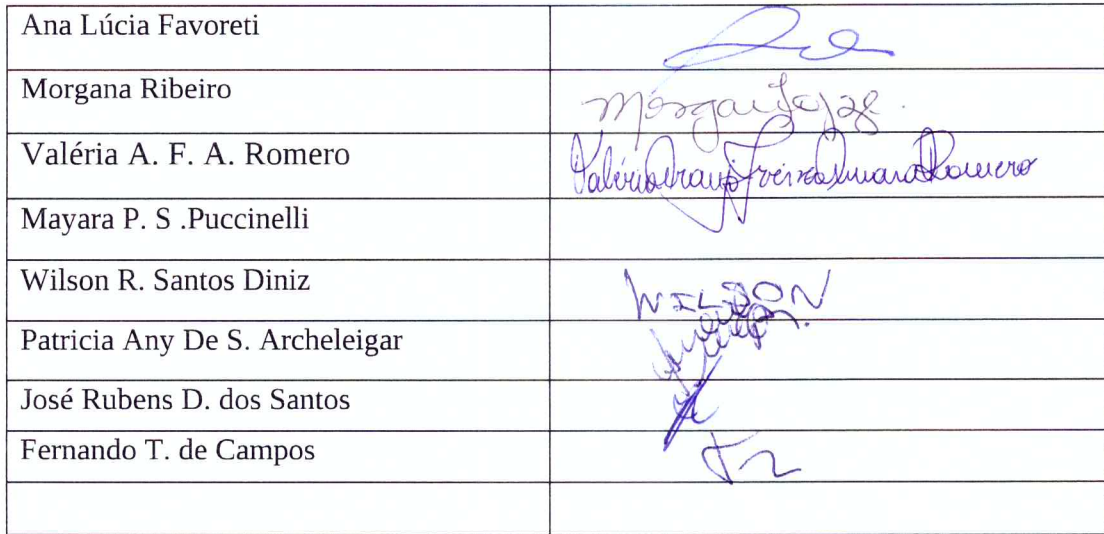 Ana Lúcia Favoreti
Morgana Ribeiro
Valéria A. F. A. Romero
Valéria Araujo Romero
Mayara P. S .Puccinelli
Wilson R. Santos Diniz
WILSON
Patricia Any De S. Archeleigar
José Rubens D. dos Santos
Fernando T. de Campos